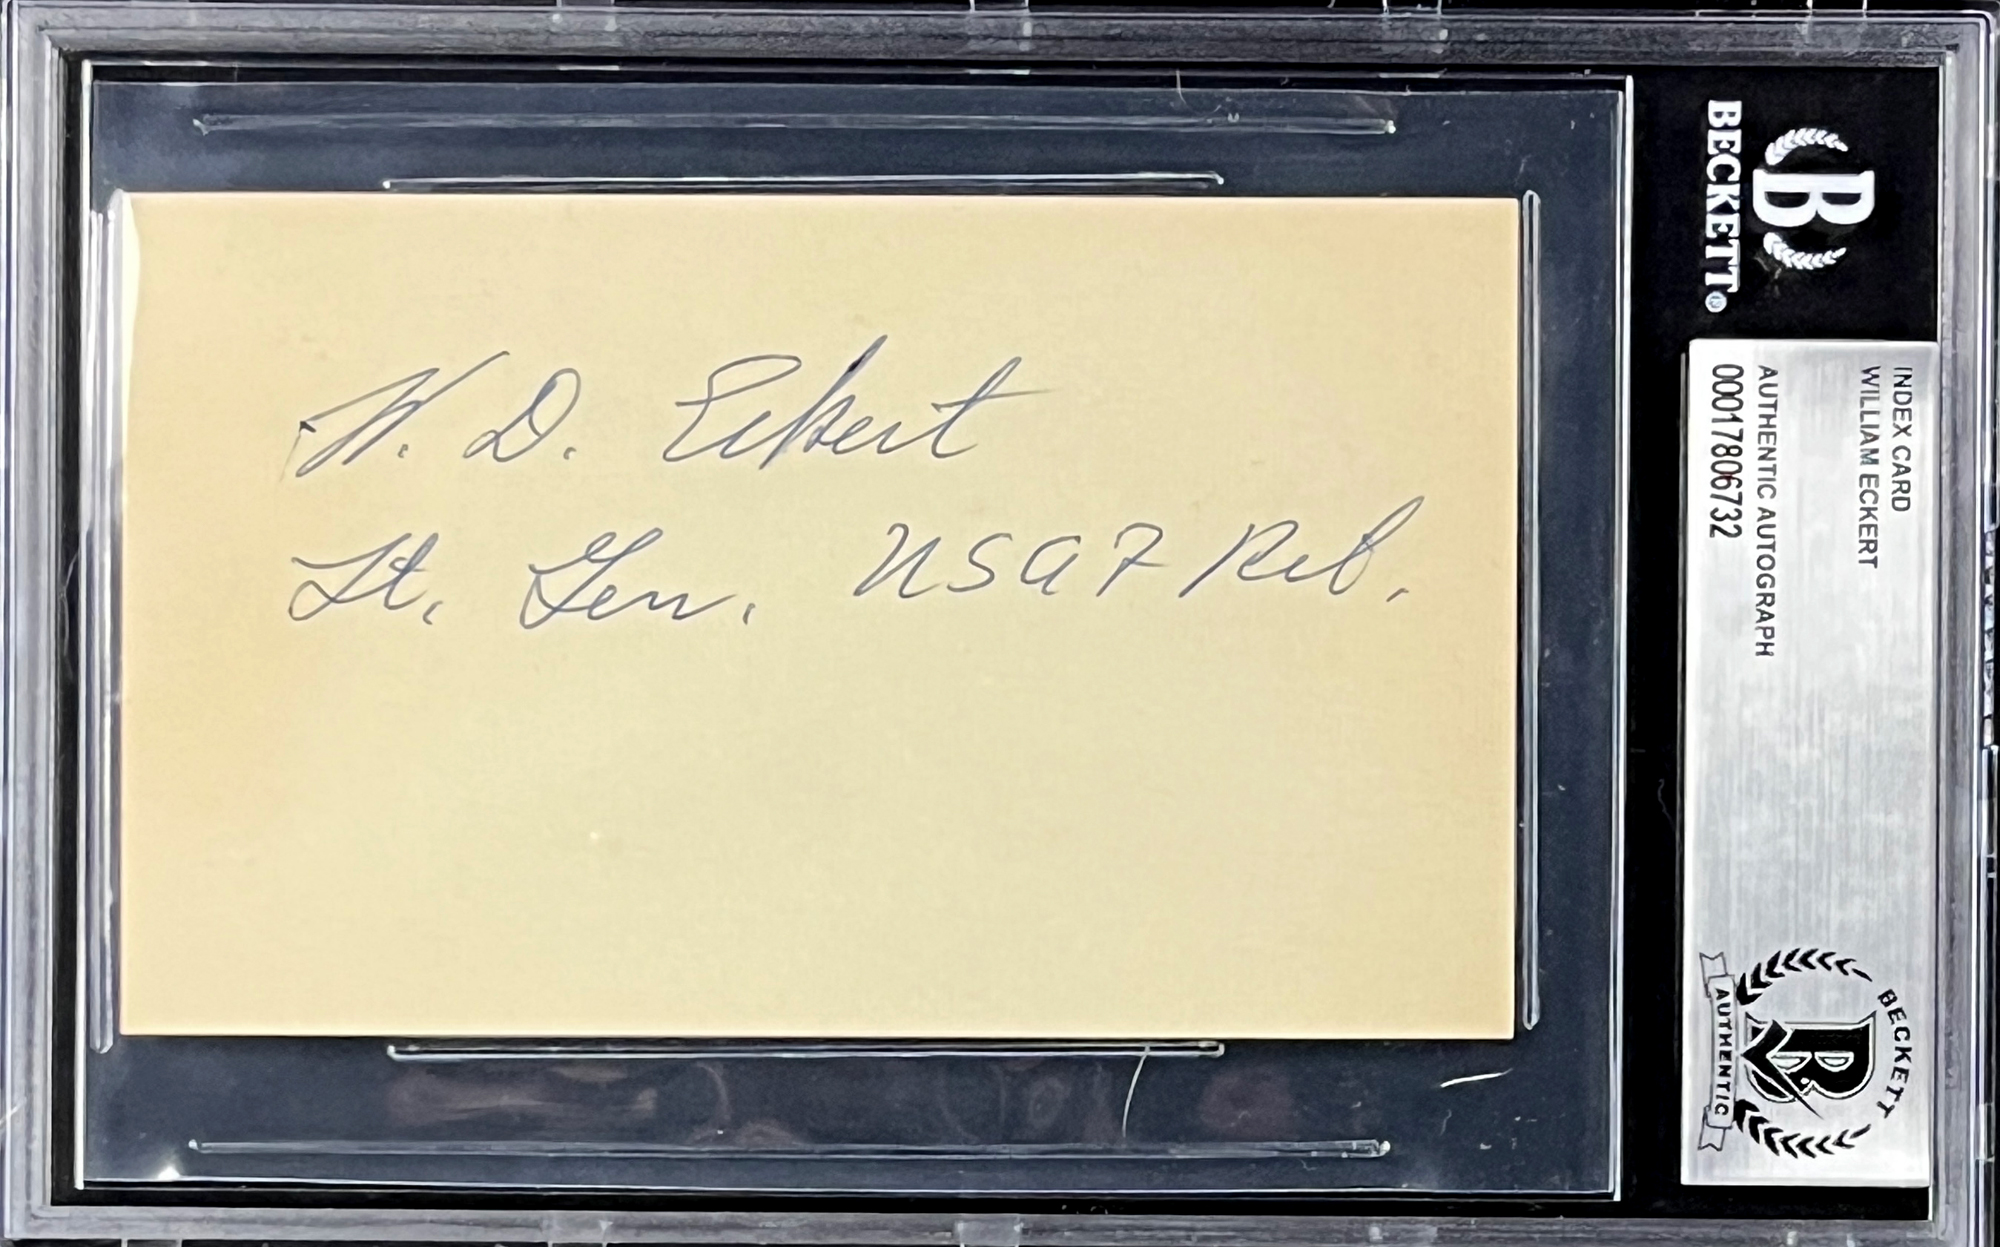 W. D. Eckert
Lt. Gen. USAF Ret.
B
BECKETT®
INDEX CARD
WILLIAM ECKERT
AUTHENTIC AUTOGRAPH
00017806732
BECKETT
AUTHENTIC